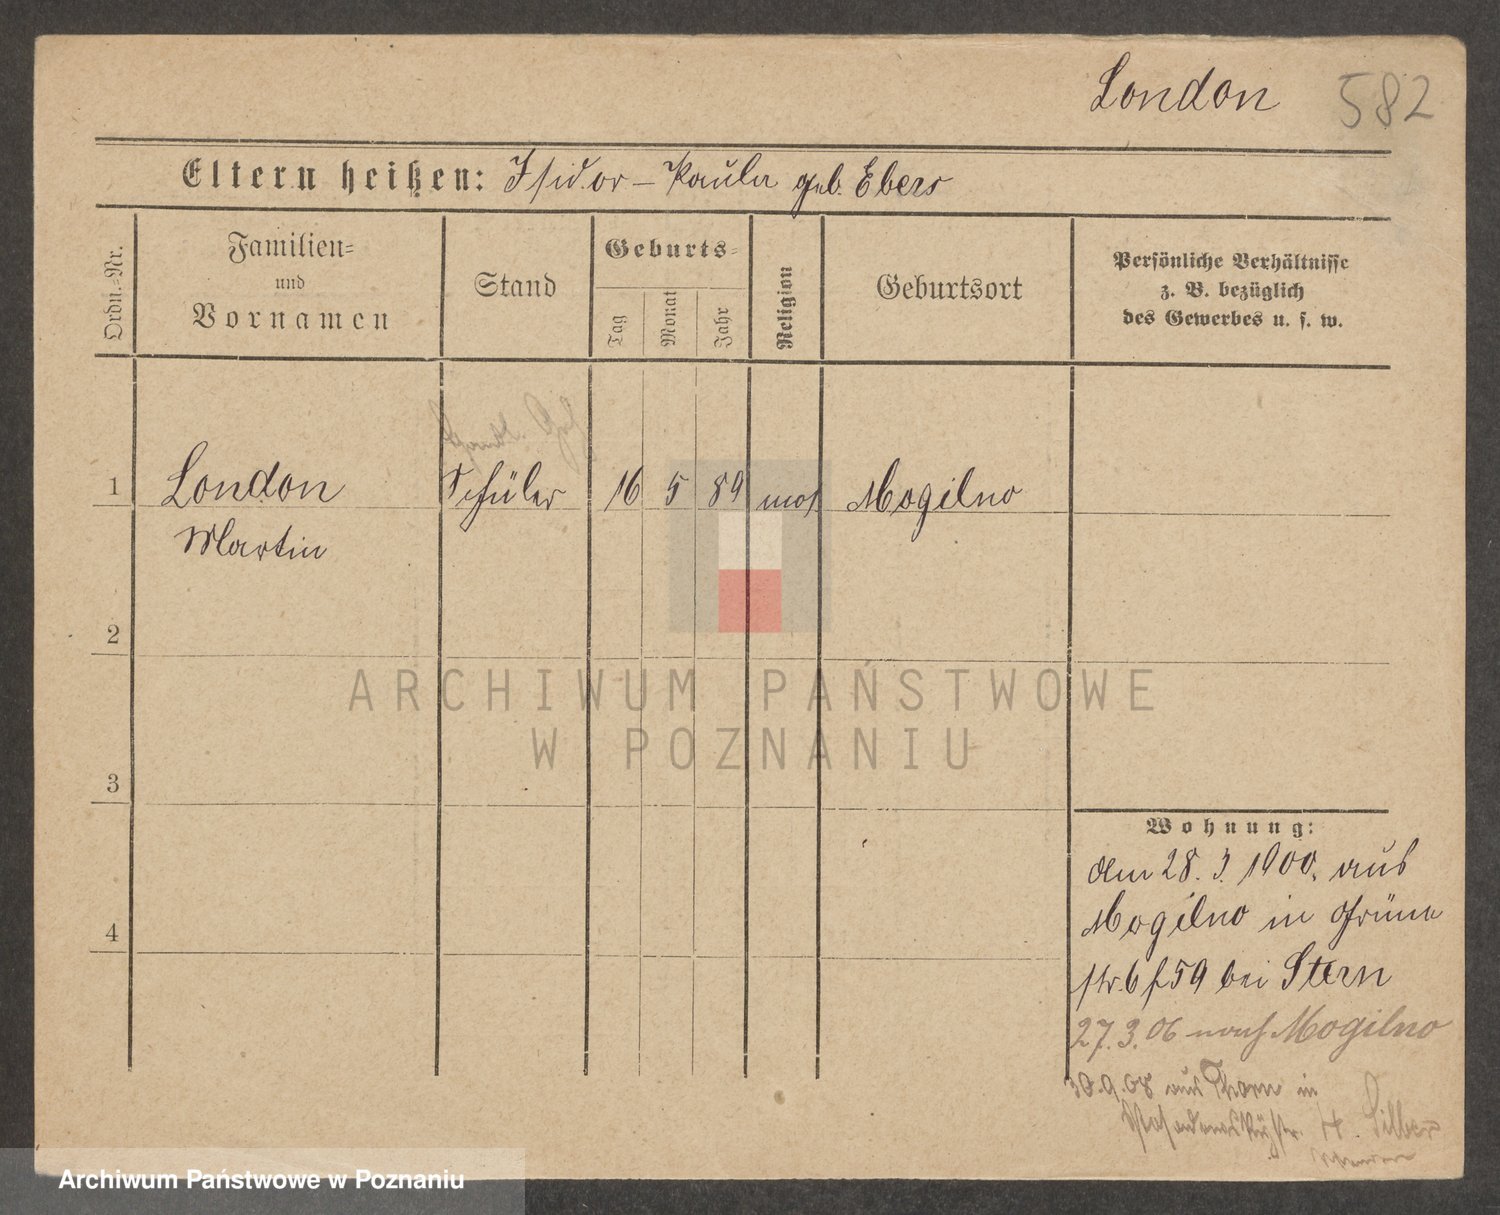 London 582
Eltern heißen: Isidor - Paula geb. Ebers
Ordn.-Nr.
Familien-
und
Vornamen
Stand
Geburts-
Tag
Monat
Jahr
Religion
Geburtsort
Persönliche Verhältnisse
z. B. bezüglich
des Gewerbes u. s. w.
1 London Schüler 16 5 89 mos Mogilno
Martin
2
3
4
ARCHIWUM PAŃSTWOWE
W POZNANIU
Wohnung:
den 28. 3. 1900. aus
Mogilno in Grüne
str. 6 bei Stern
27.3.06 nach Mogilno
30.9.08 aus Thorn in
4. Silber
Archiwum Państwowe w Poznaniu